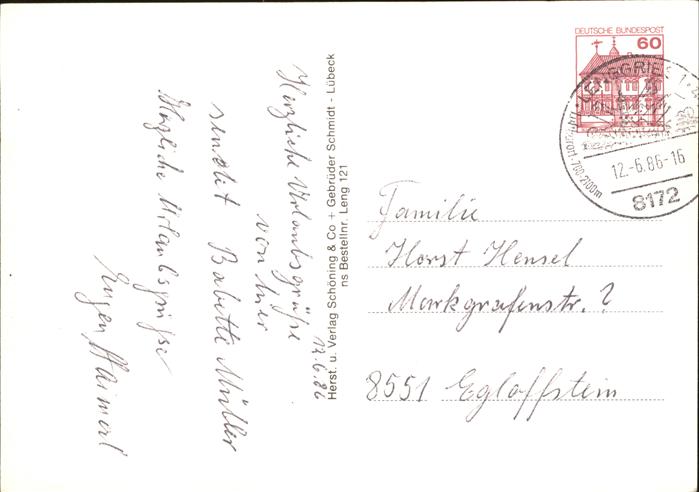 DEUTSCHE BUNDESPOST
60
LENGGRIES 1
Luftkurort-700-2100m
12.-6.86-16
8172
Herst. u. Verlag Schöning & Co + Gebrüder Schmidt - Lübeck
ns Bestellnr. Leng 121
12.6.86
Herzliche Urlaubsgrüße
von hier
sendet Babette Müller
Herzliche Urlaubsgrüße
Eugen
Familie
Horst Hensel
Markgrafenstr. ?
8551 Egloffstein